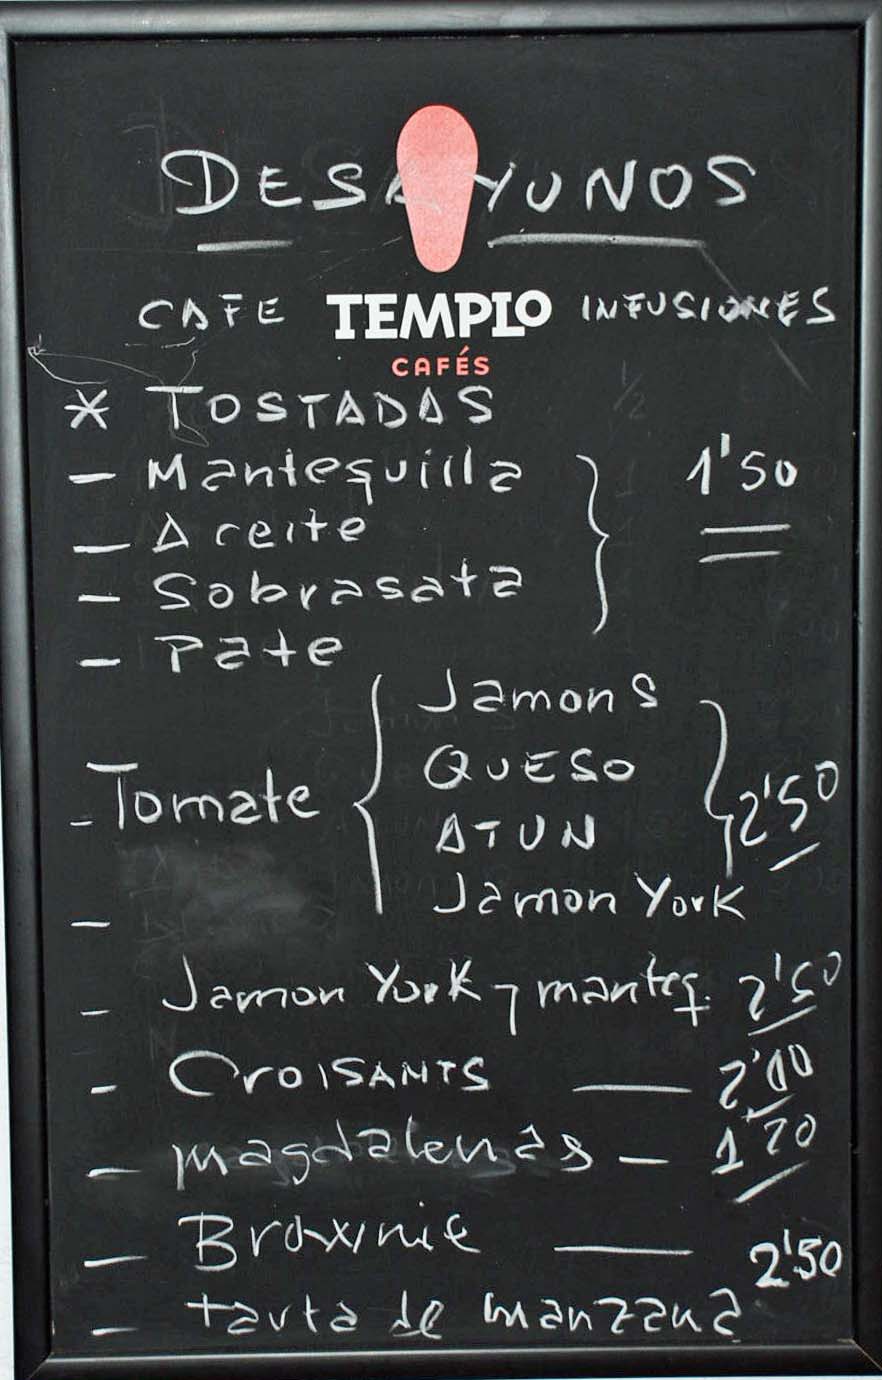 DESAYUNOS
CAFE TEMPLO INFUSIONES
CAFÉS
* TOSTADAS
- Mantequilla
- Aceite 1'50
- Sobrasata
- Pate
- Tomate
Jamon S
QUESO
ATUN 2'50
Jamon York
-
- Jamon York y manteq. 2'50
- CroISANTS — 2'00
- magdalenas - 1'20
- Brownie — 2'50
- tarta de manzana